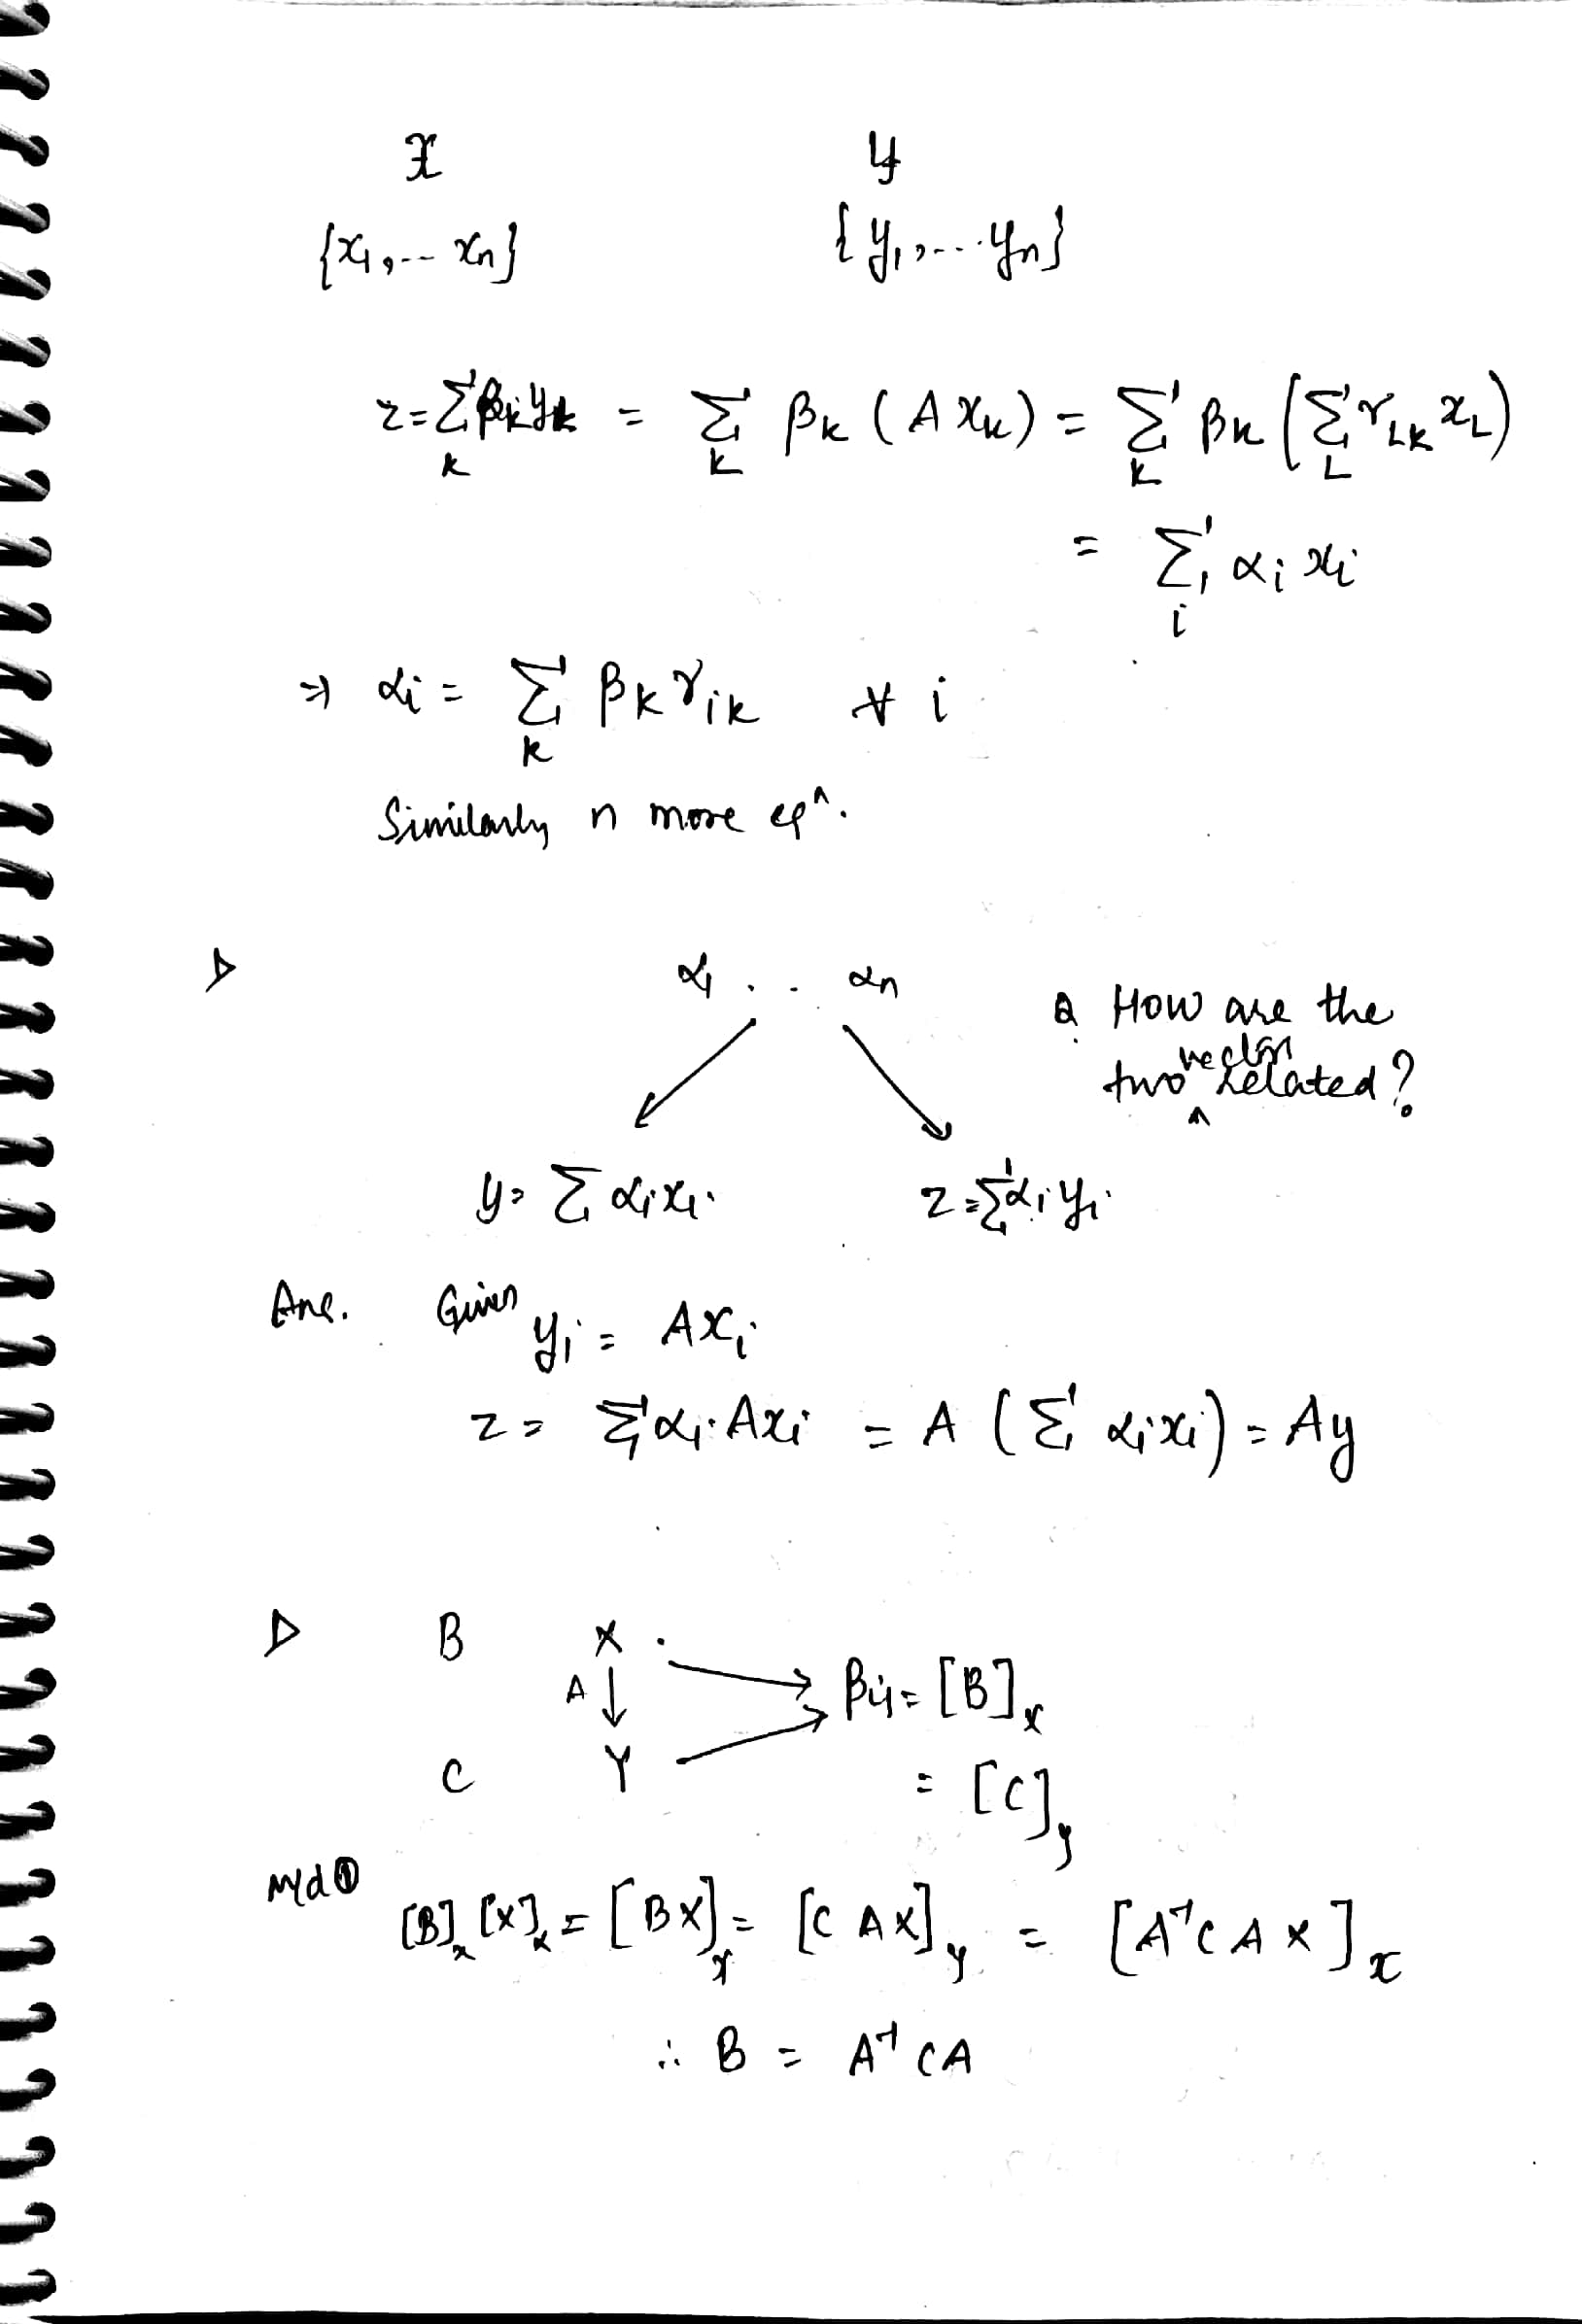 𝒳 𝒴
{x₁,-- xₙ} {y₁,--·yₙ}
z = Σₖ βₖyₖ = Σₖ βₖ (A xₖ) = Σₖ βₖ (Σ_L γ_Lk x_L)
= Σᵢ αᵢ xᵢ
⇒ αᵢ = Σₖ βₖ γᵢₖ ∀ i
Similarly n more eqⁿ.
▷ α₁ . . αₙ
Q. How are the
two vectors related?
y = Σ αᵢxᵢ z = Σ αᵢ yᵢ
Ans. Given yᵢ = Axᵢ
z = Σ αᵢ Axᵢ = A (Σ αᵢxᵢ) = Ay
▷ B X
A ↓ βij = [B]ₓ
C Y = [C]_y
Mtd ① [B]ₓ [x]ₓ = [Bx]ₓ = [C Ax]_y = [A⁻¹C A x]ₓ
∴ B = A⁻¹ CA